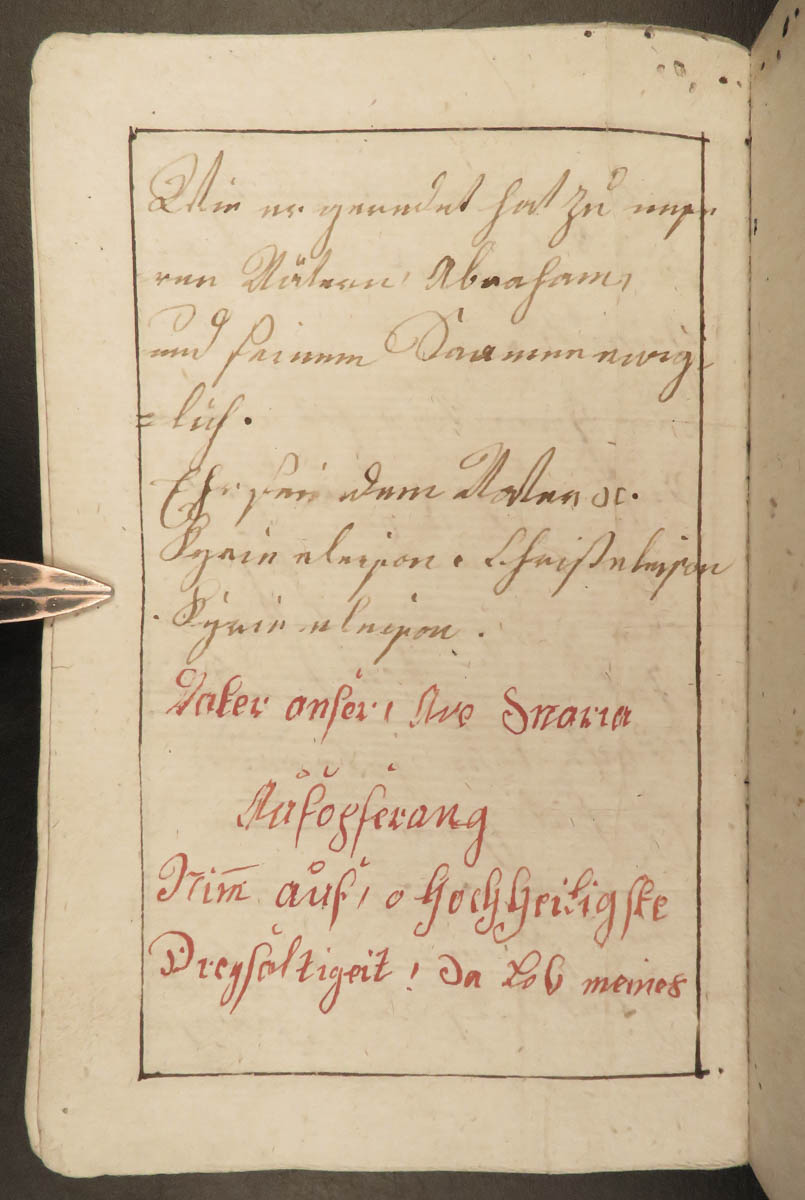 Wie er geredet hat zu unse
ren Vätern, Abraham,
und seinem Saamen ewig=
=lich.
Ehr sei dem Vater ꝛc.
Kyrie eleison. Christ eleison
. Kyrie eleison.
Vater unser, Ave Maria
Aufopferung
Nim̅ auf, o Hochheiligste
Dreyfaltigeit! Da Lob meines